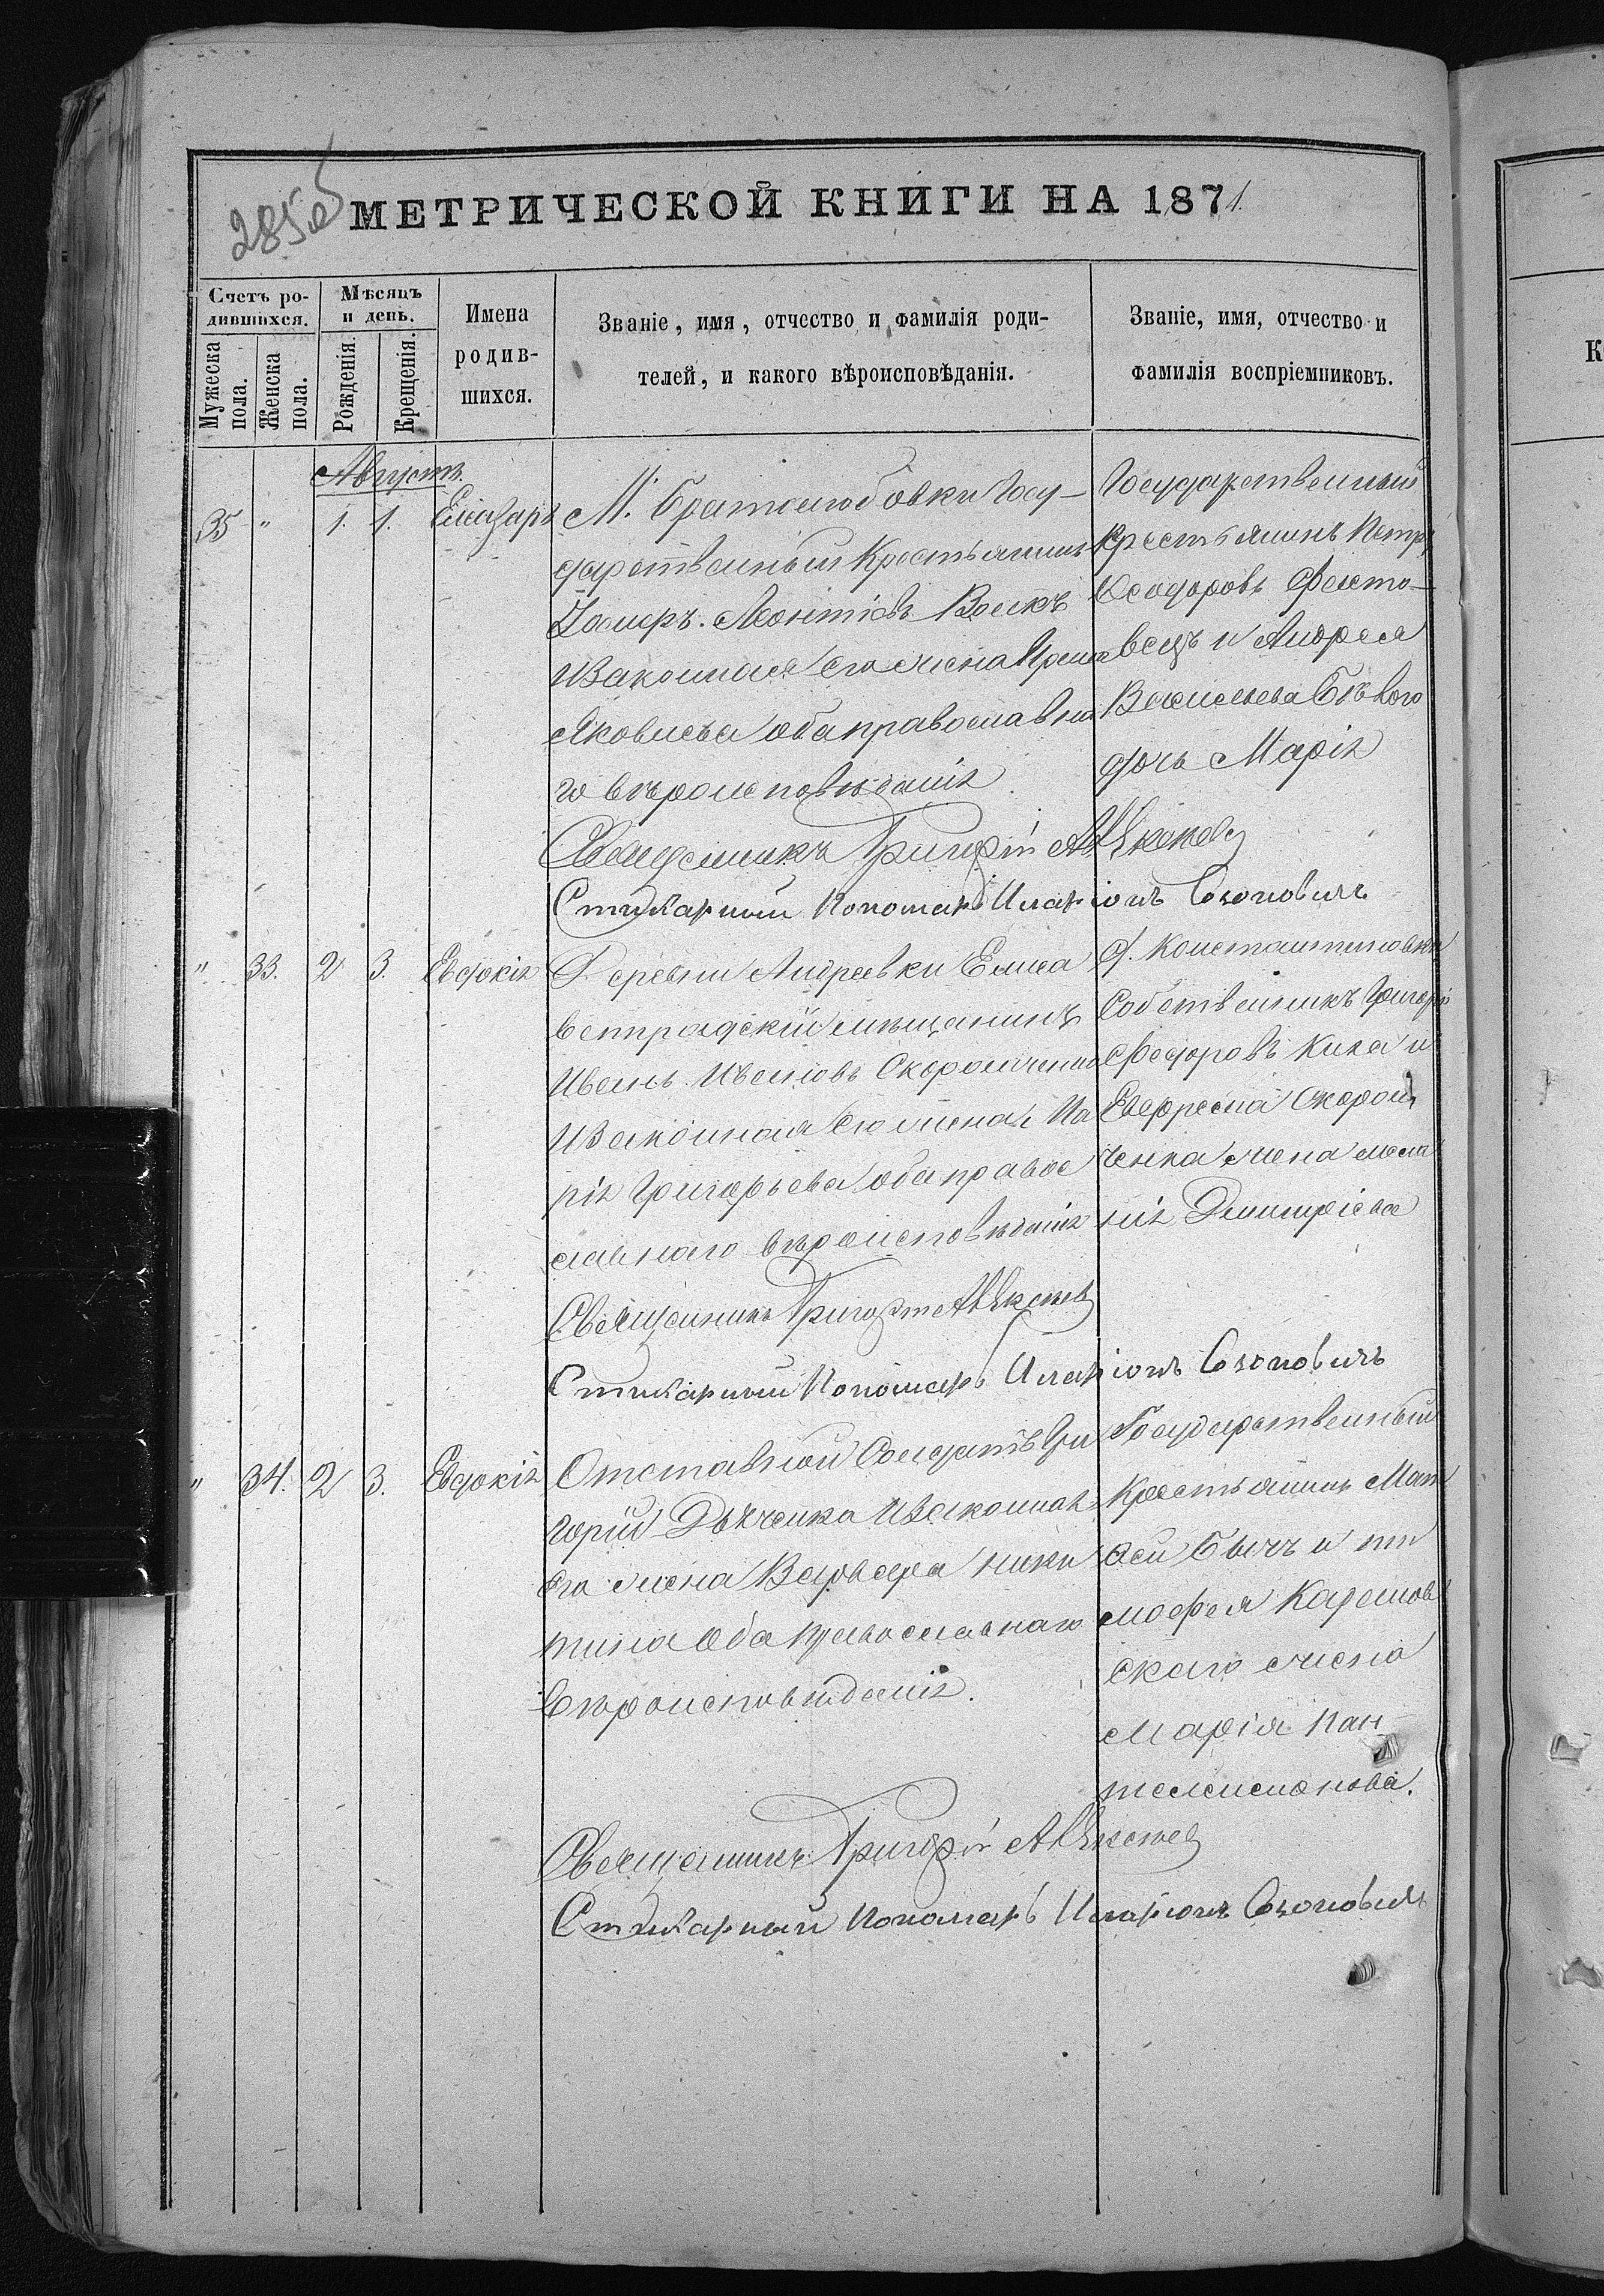 285об
МЕТРИЧЕСКОЙ КНИГИ НА 1871.
Счетъ ро-
дившихся.
Мужеска
пола.
Женска
пола.
Мѣсяцъ
и день.
Рожденія.
Крещенія.
Имена
родив-
шихся.
Званіе, имя, отчество и фамилія роди-
телей, и какого вѣроисповѣданія.
Званіе, имя, отчество и
фамилія воспріемниковъ.
К
Августъ.
35 " 1. 1. Елеазаръ
М. Братолюбовки Госу-
дарственный Крестьянинъ
Леонтіевъ Волкъ
и Законная его жена
Яковлева оба православна
го вѣроисповѣданія.
Государственный
крестьянинъ Петръ
Ѳеодоровъ
и Андрея
Васильева Бѣлого
дочь Марія
Священникъ Григорій
Стихарный Пономарь Иларіонъ
" 33. 2 3. Евдокія
Деревни Андреевки Елиса
ветградскій мѣщанинъ
Иванъ Ивановъ
и Законная его жена Ма
рія Григорьева оба право
славнаго вѣроисповѣданія
д. Константиновки
Собственникъ Григорій
Федоровъ Кика и
Евфросима
ченка жена Мела
нія Димитріева
Священникъ Григорій
Стихарный Пономарь Иларіонъ
" 34. 2 3. Евдокія
Отставной Солдатъ Гри
горій Дяченко и Законная
его жена Варвара Ники
тина оба православнаго
вѣроисповѣданія.
Государственный
Крестьянинъ Мат
ѳей Бычъ и Ти
мофея
скаго жена
Марія Пан-
телеимонова.
Священникъ Григорій
Стихарный Пономарь Иларіонъ